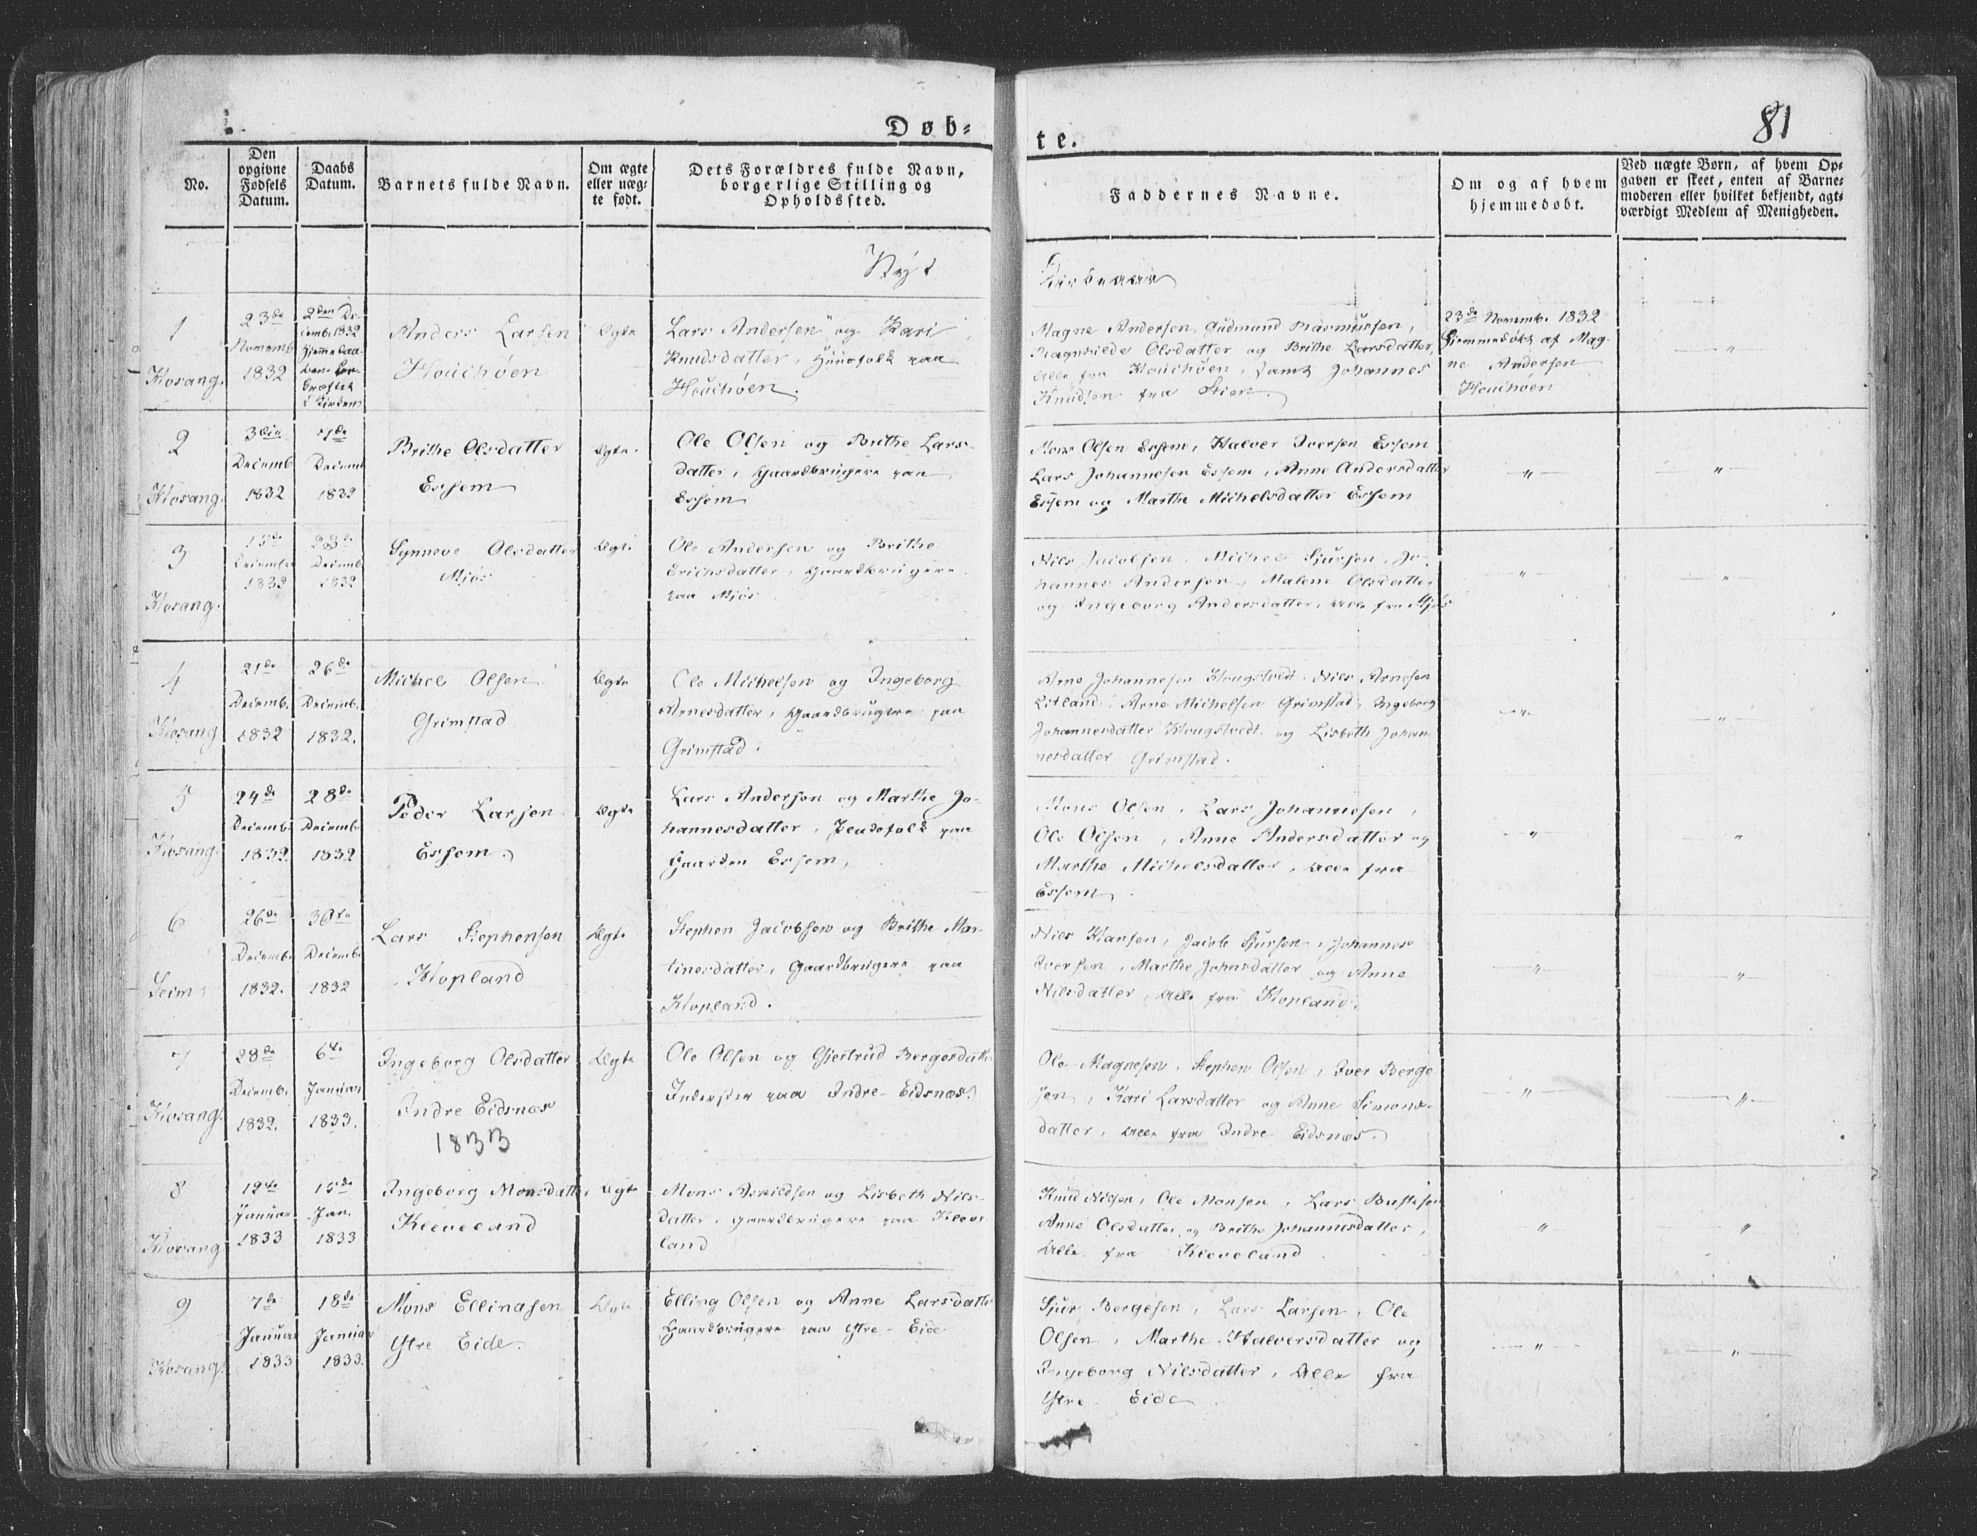 Døb-
te.
81
No.
Den opgivne Fødsels Datum.
Daabs Datum.
Barnets fulde Navn.
Om ægte eller uæg- te født.
Dets Forældres fulde Navn, borgerlige Stilling og Opholdssted.
Faddernes Navne.
Om og af hvem hjemmedøbt.
Ved uægte Børn, af hvem Op-
gaven er skeet, enten af Barne-
moderen eller hvilket bekjendt, agt-
værdigt Medlem af Menigheden.
Nyt
Kirkeaar
1
Hosang.
23de
Novemb.
1832
2den De-
cemb. 1832
i Kirken
Anders Larsen
Houchøen
Ægte
Lars Andersen og Kari
Knudsdatter, Huusfolk paa
Houchøen.
Magne Andersen, Gudmund Rasmussen,
Ragnhilde Olsdatter og Brithe Larsdatter,
alle fra Houchøen, samt Johannes
Knudsen fra Stien.
23de Novemb. 1832
Hjemmedøbt af Mag-
ne Andersen
Houchøen
"
2
Hosang.
3die
Decemb.
1832
Decemb.
1832
Brithe Olsdatter
Essem
Ægte.
Ole Olsen og Brithe Lars-
datter, Gaardbrugere paa
Essem
Mons Olsen Essem, Halver Iversen Essem
Lars Johannesen Essem, Anne Andersdatter
Essem og Marthe Michelsdatter Essem
"
"
3
Hosang.
15de
December
1832
Decemb.
1832
Synneve Olsdatter
Mjøs
Ægte
Ole Andersen og Brithe
Erichsdatter, Gaardbrugere
paa Mjøs
Nils Jacobsen, Michel Sjursen, Jo-
hannes Andersen, Malene Olsdatter
og Ingeborg Andersdatter, alle fra Mjøs
"
"
4
Hosang
21de
Decemb.
1832
26de
Decemb.
1832.
Michel Olsen
Grimstad
Ægte
Ole Michelsen og Ingeborg
Arnesdatter, Gaardbrugere paa
Grimstad.
Arne Johannesen Hougstvedt, Nils Arnesen
Litland, Arne Michelsen Grimstad, Ingeborg
Johannesdatter Hougstvedt og Lisbeth Johan-
nesdatter Grimstad.
"
"
5
Hosang.
24de
Decemb.
1832
28de
Decemb.
1832
Peder Larsen
Essem.
Ægte
Lars Andersen og Marthe Jo-
hannesdatter, Huusfolk paa
Gaarden Essem,
Mons Olsen, Lars Johannesen,
Ole Olsen, Anne Andersdatter og
Marthe Michelsdatter, alle fra
Essem.
"
"
6
Seim
26de
Decemb.
1832.
30te
Decemb.
1832
Lars Stephensen
Hopland
Ægte
Stephen Jacobsen og Brithe Mar-
tinesdatter, Gaardbrugere paa
Hopland.
Nils Hansen, Jacob Sjursen, Johannes
Iversen, Marthe Johnsdatter og Anne
Nilsdatter, alle fra Hopland.
"
"
7
Hosang.
28de
Decemb.
1832.
6te
Januar
1833.
Ingeborg Olsdatter
Indre Eidsnæs
1833
Ægte
Ole Olsen og Gjertrud Bergesdatter
Inderster paa Indre Eidsnæs.
Ole Magnesen, Stephen Olsen, Iver Berge-
sen, Kari Larsdatter og Anne Simons-
datter, alle fra Indre Eidsnæs.
"
"
8
Hosang.
12te
Januar
1833
15de
Jan.
1833
Ingeborg Monsdatter
Kleveland
Ægte
Mons Askildsen og Lisbeth Nils-
datter, Gaardbrugere paa Kleve-
land
Knud Nilsen, Ole Monsen, Lars
Anne Olsdatter og Brithe Johannesdatter,
alle fra Kleveland
"
"
9
Hosang.
7de
Januar
1833
18de
Januar
1833.
Mons Ellingsen
Ytre Eide.
Ægte
Elling Olsen og Anne Larsdatter
Gaardbrugere paa Ytre Eide
Sjur Bergesen, Lars Larsen, Ole
Olsen, Marthe Halversdatter og
Ingeborg Nilsdatter, alle fra
Ytre Eide
"
"